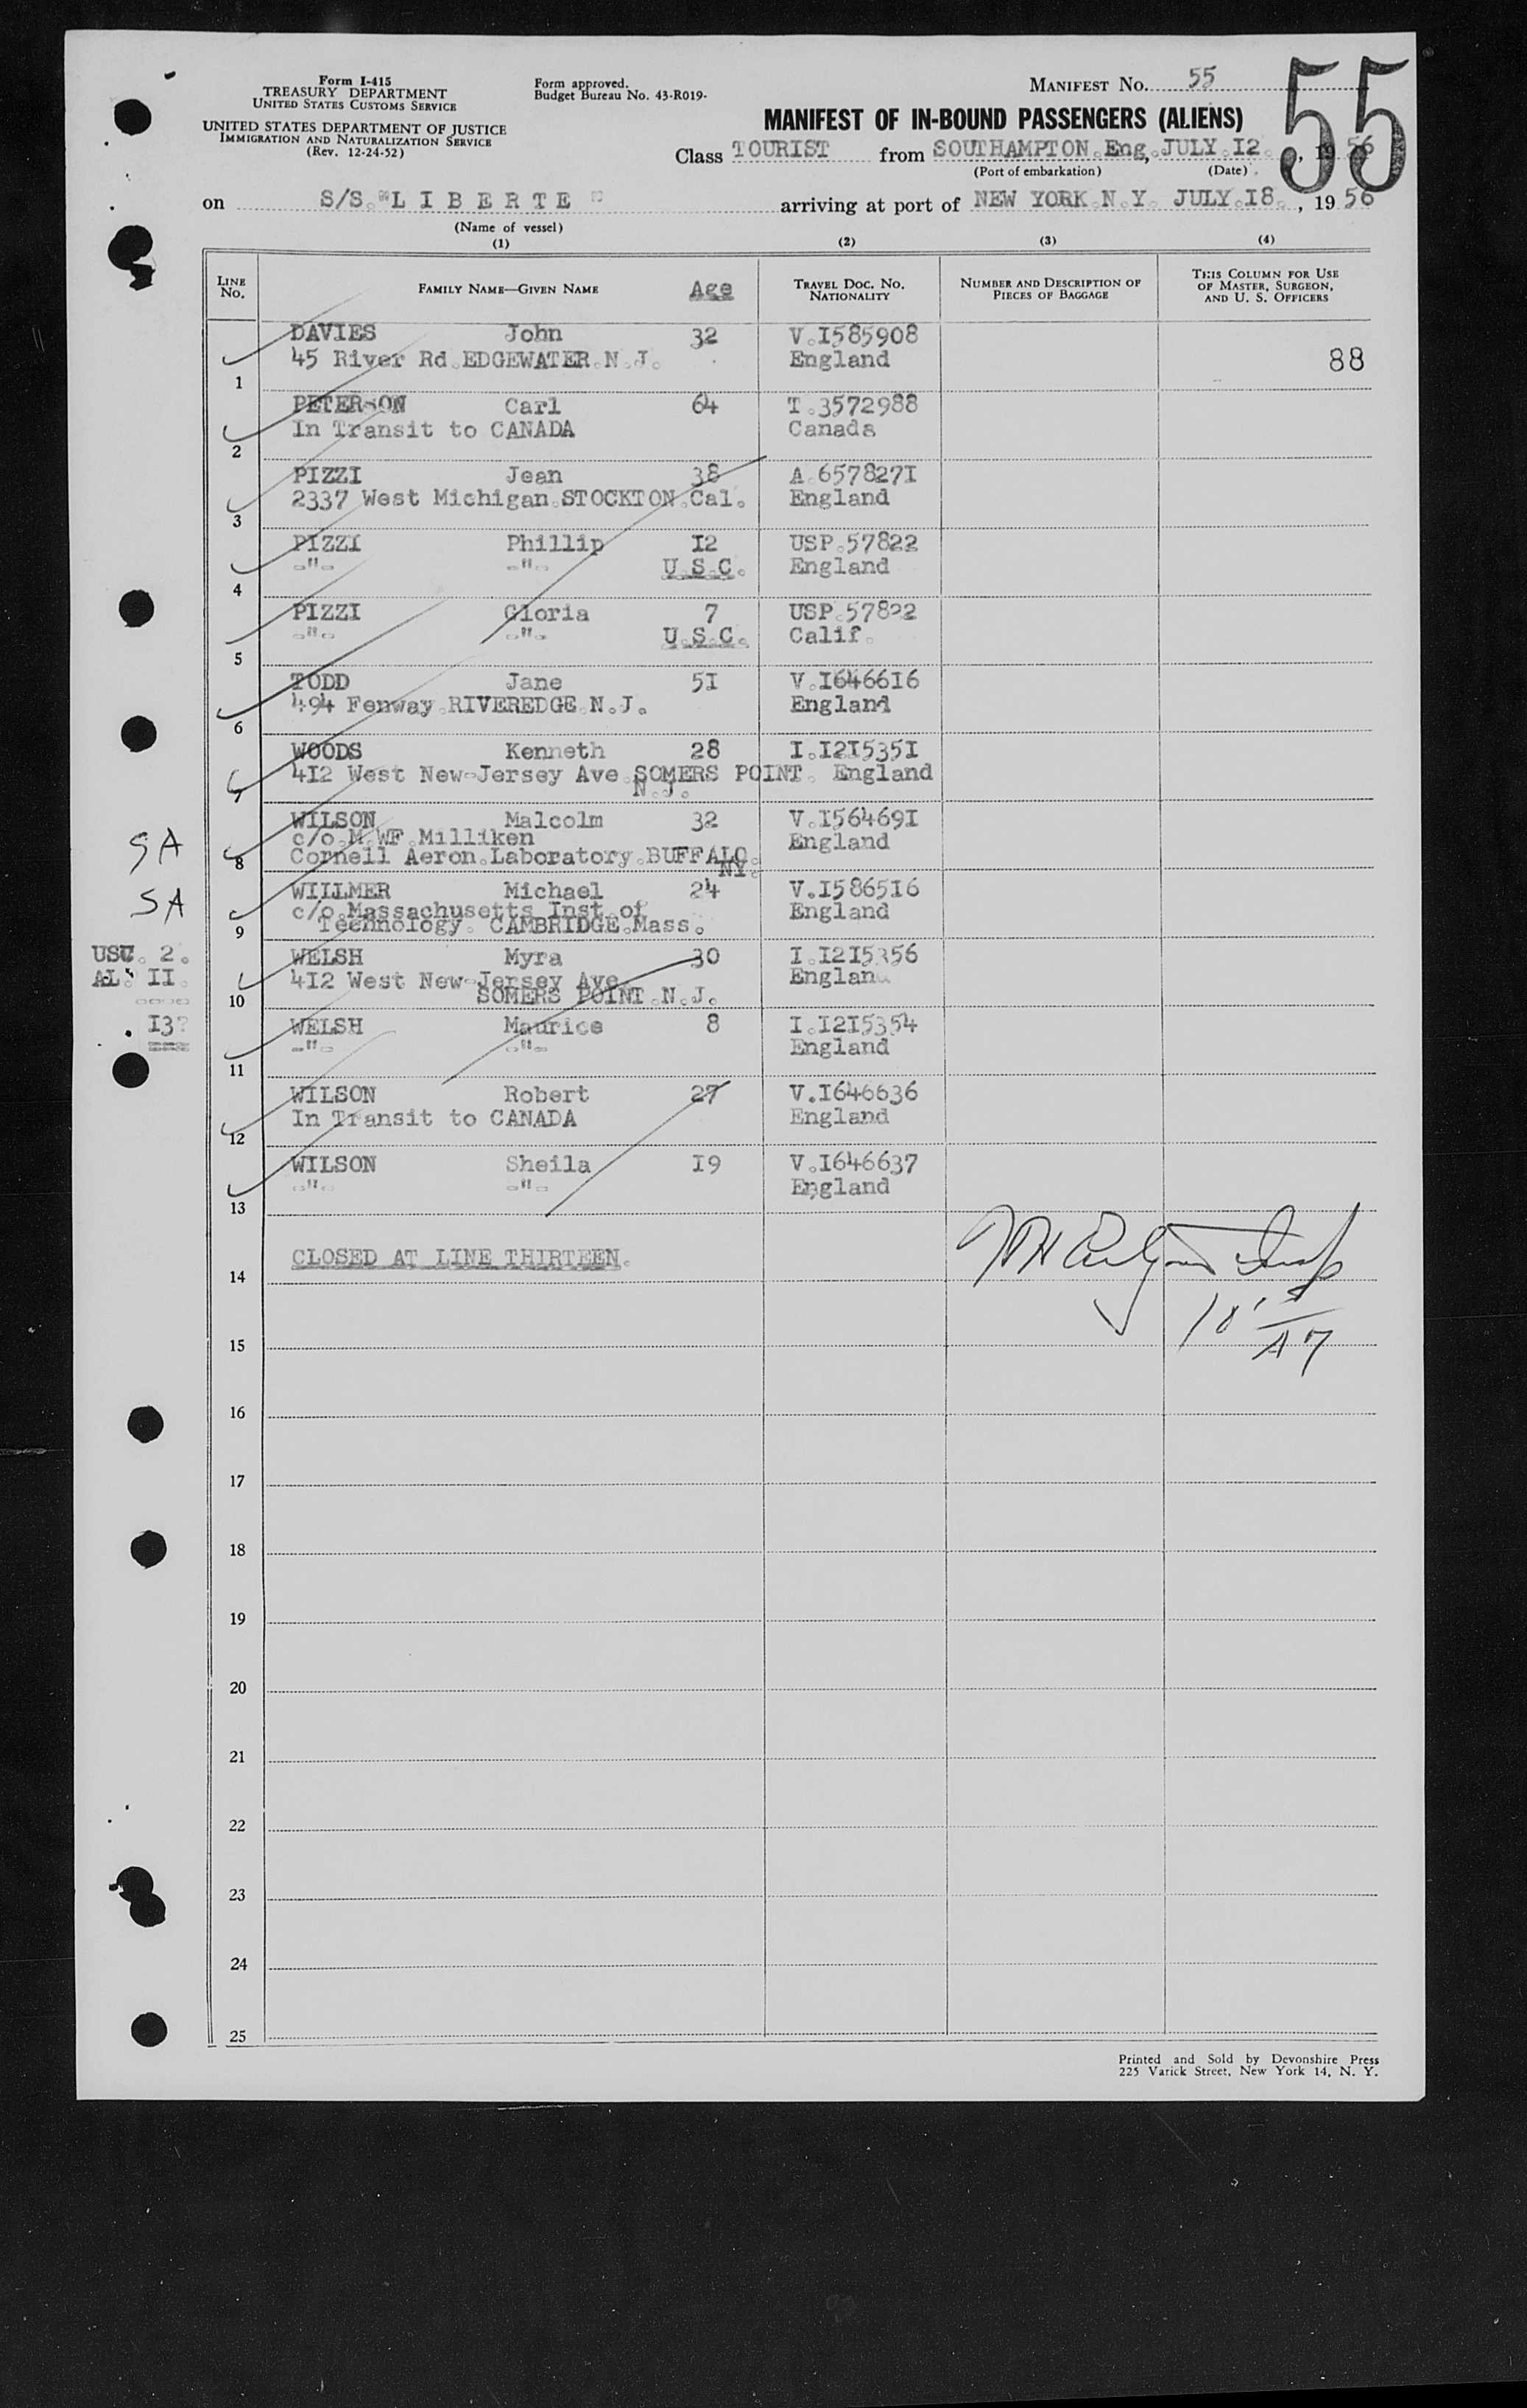 Form I-415
TREASURY DEPARTMENT
UNITED STATES CUSTOMS SERVICE
UNITED STATES DEPARTMENT OF JUSTICE
IMMIGRATION AND NATURALIZATION SERVICE
(Rev. 12-24-52)
Form approved.
Budget Bureau No. 43-R019-
MANIFEST No. 55
55
MANIFEST OF IN-BOUND PASSENGERS (ALIENS)
Class TOURIST from SOUTHAMPTON.Eng, JULY.12., 1956
(Port of embarkation) (Date)
on S/S."LIBERTE" arriving at port of NEW YORK.N.Y. JULY.18., 1956
(Name of vessel)
(1) (2) (3) (4)
LINE No. FAMILY NAME—GIVEN NAME Age TRAVEL DOC. No. NATIONALITY NUMBER AND DESCRIPTION OF PIECES OF BAGGAGE THIS COLUMN FOR USE OF MASTER, SURGEON, AND U. S. OFFICERS
DAVIES John 32 V.I585908
45 River Rd.EDGEWATER.N.J. England 88
1
PETERSON Carl 64 T.3572988
In Transit to CANADA Canada
2
PIZZI Jean 38 A.657827I
2337 West Michigan.STOCKTON.Cal. England
3
PIZZI Phillip I2 USP.57822
-"- -"- U.S.C. England
4
PIZZI Gloria 7 USP.57822
-"- -"- U.S.C. Calif.
5
TODD Jane 5I V.I6466I6
494 Fenway.RIVEREDGE.N.J. England
6
WOODS Kenneth 28 I.I2I535I
4I2 West New-Jersey Ave.SOMERS POINT. England
N.J.
7
WILSON Malcolm 32 V.I56469I
c/o.M.WF.Milliken England
SA 8 Cornell Aeron.Laboratory.BUFFALO.
NY.
WILLMER Michael 24 V.I5865I6
SA c/o.Massachusetts Inst.of England
9 Technology. CAMBRIDGE.Mass.
USC. 2. WELSH Myra 30 I.I2I5356
AL. II. 4I2 West New-Jersey Ave England
10 SOMERS POINT.N.J.
I3 WELSH Maurice 8 I.I2I5354
-"- -"- England
11
WILSON Robert 27 V.I646636
In Transit to CANADA England
12
WILSON Sheila I9 V.I646637
-"- -"- England
13
CLOSED AT LINE THIRTEEN.
14
15
16
17
18
19
20
21
22
23
24
25
Printed and Sold by Devonshire Press
225 Varick Street, New York 14, N. Y.